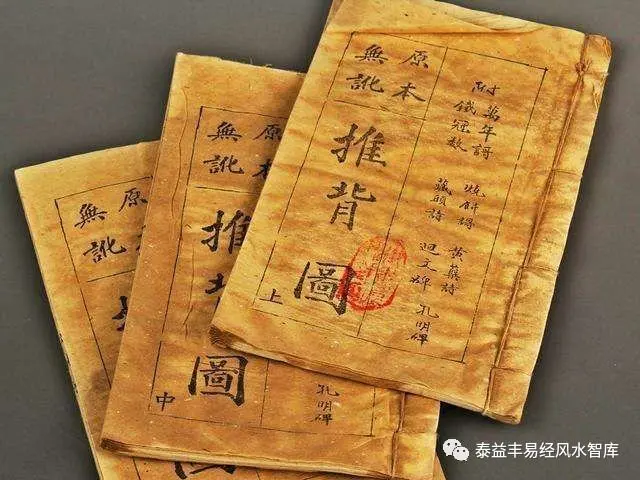 附萬年謌
鐵冠數
燒餅謌
藏頭詩
黃蘗詩
迴文碑
孔明碑
原本
無訛
推背圖
上
孔明碑
原本
無訛
推背圖
中
原
無訛
泰益丰易经风水智库